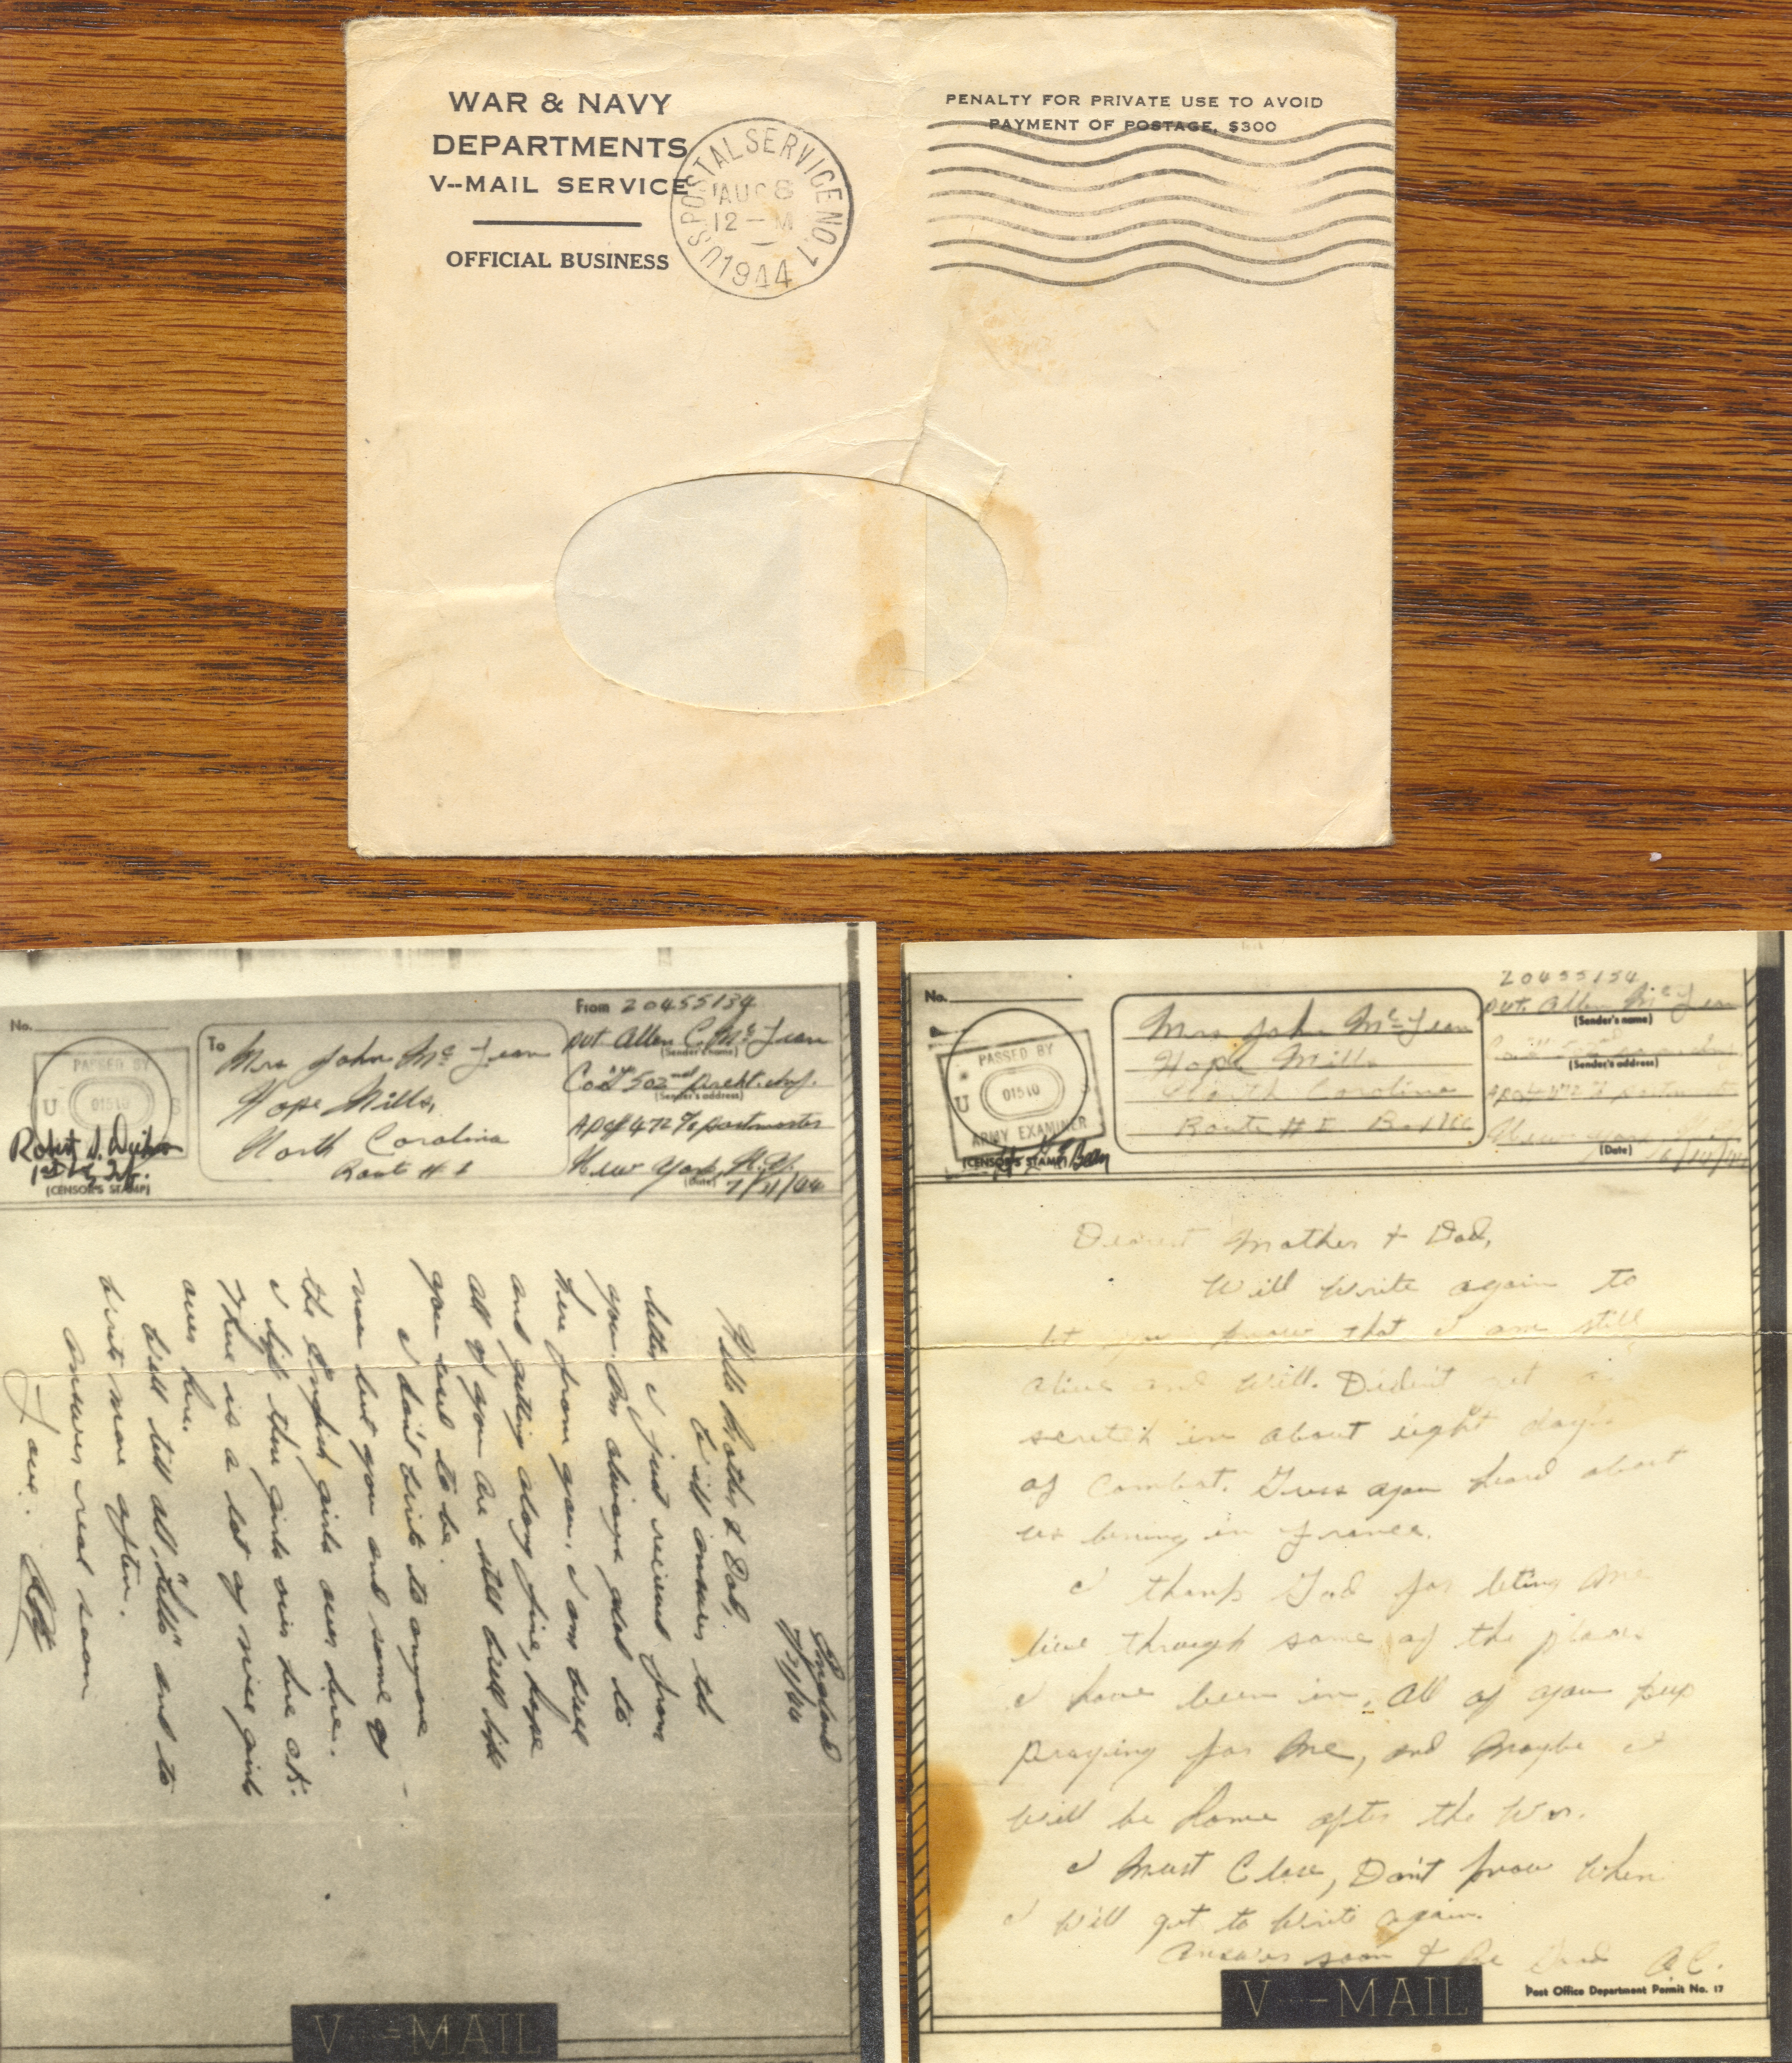 WAR & NAVY
DEPARTMENTS
V--MAIL SERVICE
OFFICIAL BUSINESS
U.S. POSTAL SERVICE NO. 1
AUG 8
12 - M
1944
PENALTY FOR PRIVATE USE TO AVOID
PAYMENT OF POSTAGE, $300
No.
PASSED BY
U S
01510
1st Lt. Inf.
(CENSOR'S STAMP)
To
Mrs John Mc Lean
Hope Mills,
North Carolina
Route # 1
From 20455134
Pvt Allen C. Mc Lean
(Sender's name)
502nd Prcht. Inf.
(Sender's address)
APO# 472 % postmaster
New York, N.Y.
(Date)
England
Hello Mother & Dad,
Will answer the
letter I just received from
you. Am always glad to
here from you, I am well
and getting along fine, hope
all of you are still well like
you used to be.
I don't write to anyone
now but you and some of
the English girls over here.
I like these girls over here ok.
There is a lot of nice girls
over here.
Will tell all "hello" and to
write more often.
Answer real soon
Love,
V--MAIL
No.
PASSED BY
U
01510
ARMY EXAMINER
(CENSOR'S STAMP)
Mrs John Mc Lean
Hope Mills
North Carolina
Route # 1 Box 166
20455134
Pvt. Allen Mc Lean
(Sender's name)
(Sender's address)
APO# 472 % postmaster
New York, N.Y.
(Date)
6/14/44
Dearest Mother & Dad,
Will write again to
let you know that I am still
alive and well. Didn't get a
scretch in about eight days
of combat. Guess you heard about
us being in France.
I thank God for leting me
live through some of the places
I have been in. All of you keep
praying for me, and maybe I
will be home after the war.
I must close, Don't know when
I will get to write again.
Answer soon & Be Good A.C.
V--MAIL
Post Office Department Permit No. 17